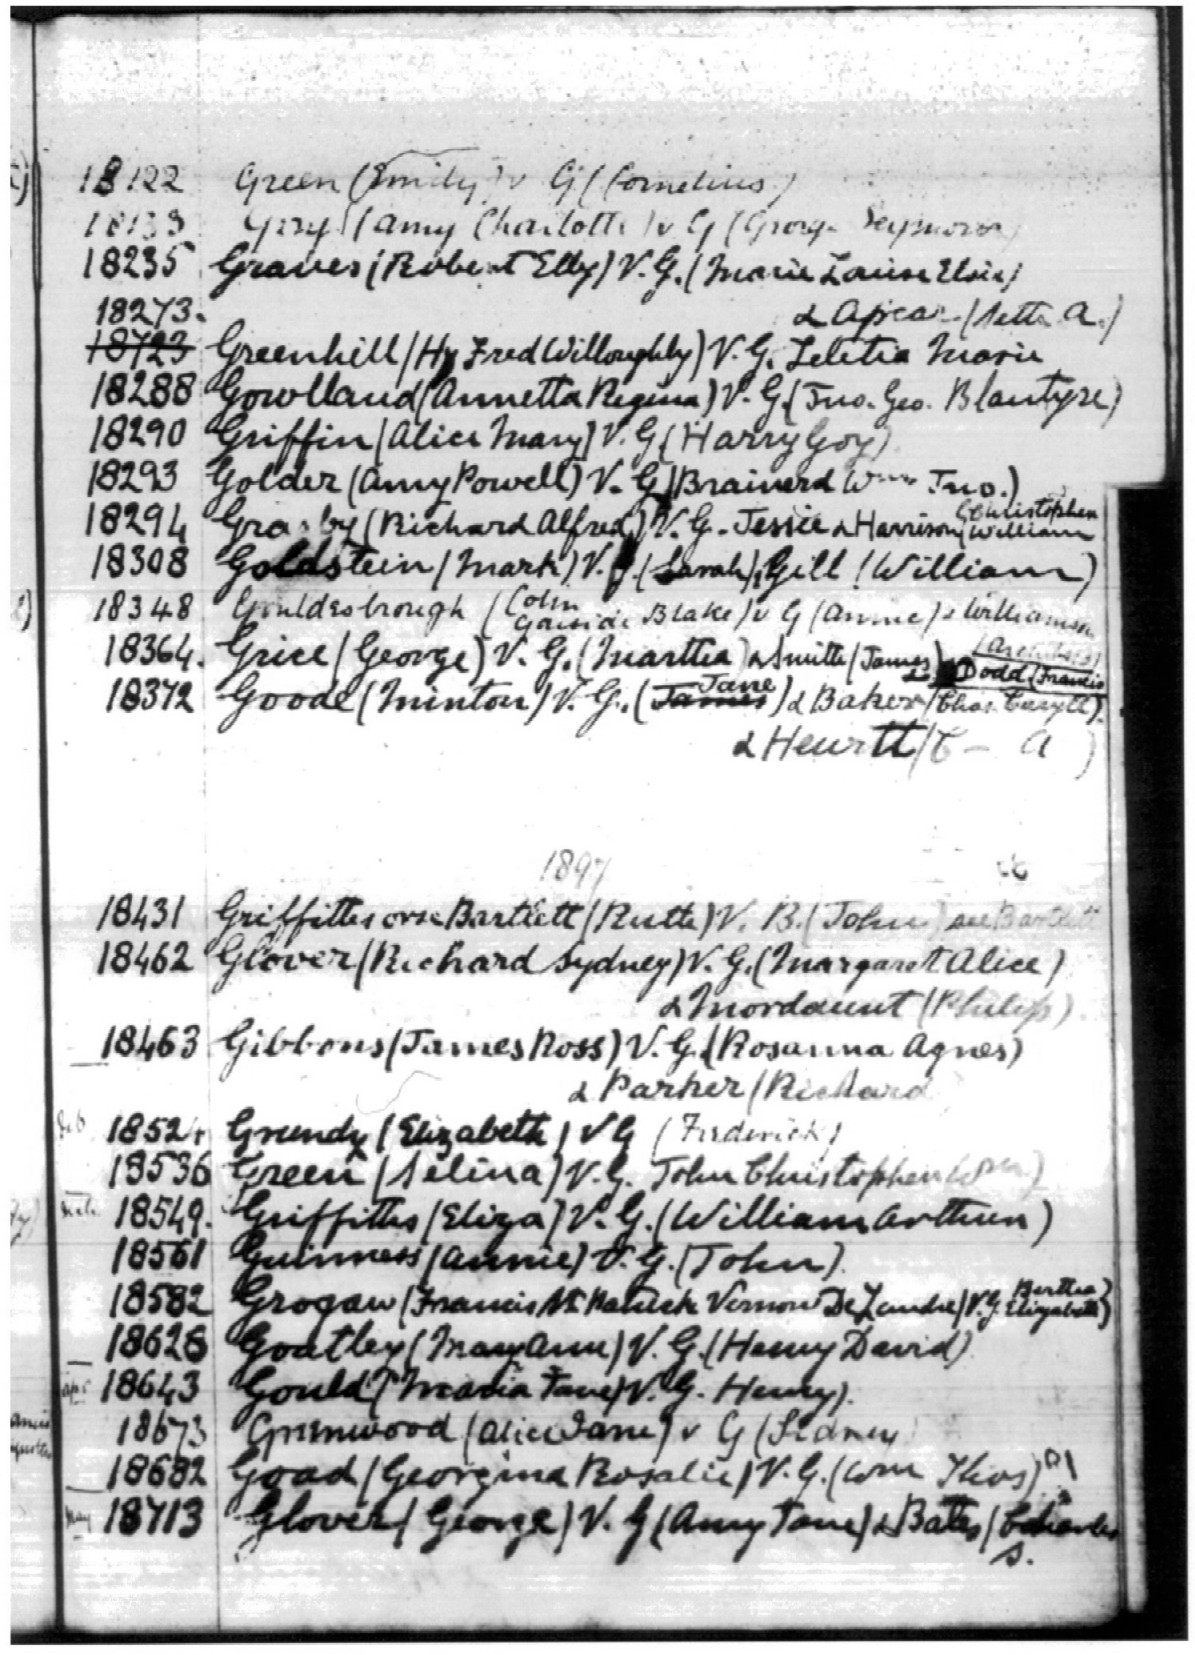 18122 Green (Emily) v G (Cornelius)
18133 (Amy Charlotte) v G (George Seymour)
18235 Graves (Robert Elby) V. G. (Marie Louise Elsie)
& Apcar (Seth A.)
18273.
18723 Greenhill (Hy Fred Willoughby) V. G. Letitia Marie
18288 Gowlland (Annetta Regina) V. G. (Jno. Geo. Blantyre)
18290 Griffin (Alice Mary) V. G (Harry Goy)
18293 Golder (Amy Powell) V. G (Brainerd Wm Jno.)
18294 (Richard Alfred) V. G. Jessie & Harrison (Christopher William
18308 Goldstein (Mark) V. G. (Sarah), Gill (William)
18348 Gouldesbrough (Colin Blake) v G (Annie) & Williamson
18364. Grice (George) V. G. (Martha) & Smith (James) & Dodd (Francis
18372 Goode (Minton) V. G. (James Jane) & Baker (Chas Caryll).
& Hewitt (C - A )
1897
18431 Griffiths orse Bartlett (Ruth) V. B. (John) see Bartlett
18462 Glover (Richard Sydney) V. G. (Margaret Alice)
& Mordaunt (Philip)
18463 Gibbons (James Ross) V. G. (Rosanna Agnes)
& Parker (Richard
Feb 18524 Grundy (Elizabeth) v G (Frederick)
18536 Green (Selina) V. G. John Christopher Wm.)
18549. Griffiths (Eliza) V. G. (William Arthur)
18561 Guinness (Annie) V. G. (John).
18582 Grogan (Francis Vernon De) V. G. Bertha Elizabeth)
18626 Goatley (Mary Ann) V. G. (Henry David)
18643 Gould (Maria Jane) V. G. Henry).
18673 Greenwood (Alice Jane) v G (Sidney)
18682 Goad (Georgina Rosalie) V. G. (Wm Thos)
May 18713 Glover (George) V. G (Amy Jane) & Bates (Charles
S.